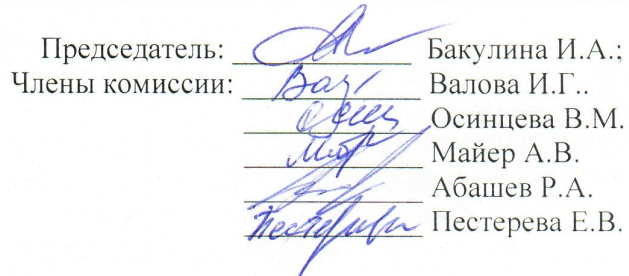 Председатель: Бакулина И.А.;
Члены комиссии: Валова И.Г..
Осинцева В.М.
Майер А.В.
Абашев Р.А.
Пестерева Е.В.